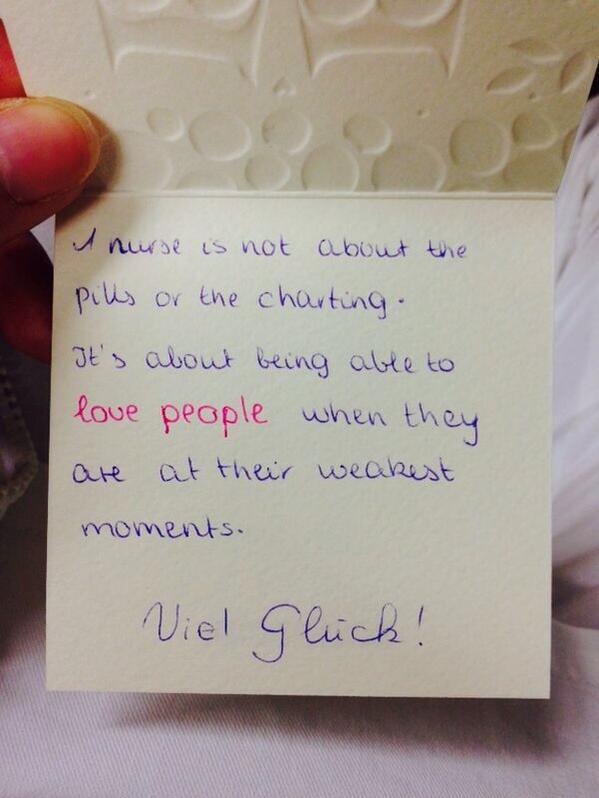 A nurse is not about the
pills or the charting.
It's about being able to
love people when they
are at their weakest
moments.
Viel Glück!